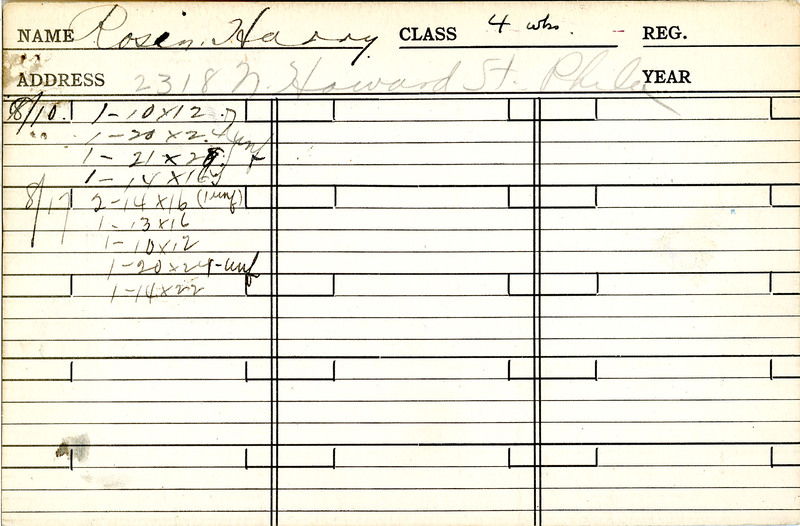 NAME Rosin, Harry CLASS 4 wks. REG.
ADDRESS 2318 N. Howard St. Phila YEAR
8/10. 1-10x12
1-20x24 unf
1-21x28
1-14x16
8/17 2-14x16 (1 unf)
1-13x16
1-10x12
1-20x24-unf
1-14x22